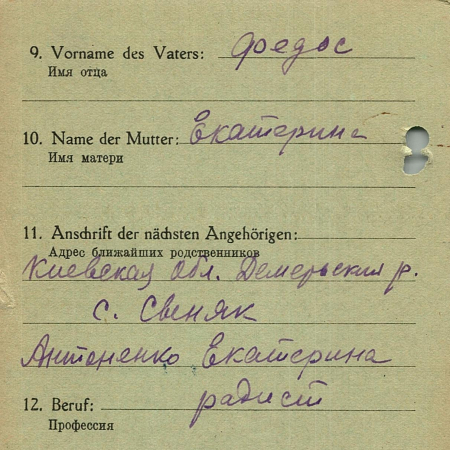 9. Vorname des Vaters: Федос
Имя отца
10. Name der Mutter: Екатерина
Имя матери
11. Anschrift der nächsten Angehörigen:
Адрес ближайших родственников
Киевская обл. Демерьский р.
с. Свеняк
Антоненко Екатерина
12. Beruf: радист
Профессия